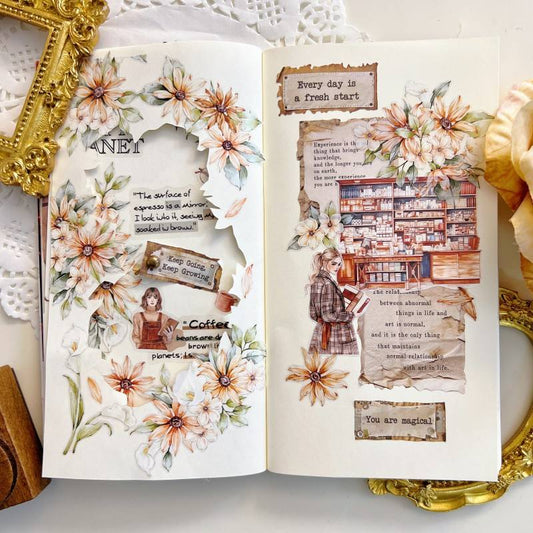 ANET
"The surface of
espresso is a mirror.
I look into it, seeing my
soaked in brown."
Keep Going,
Keep Growing
"Coffee
beans are
brown
planets,
Every day is
a fresh start
Experience is th
thing that brings
knowledge,
and the longer you
on earth,
the more experience
you are
The rela
between abnormal
things in life and
art is normal,
and it is the only
thing that maintains
normal relationship
with art in life.
You are magical